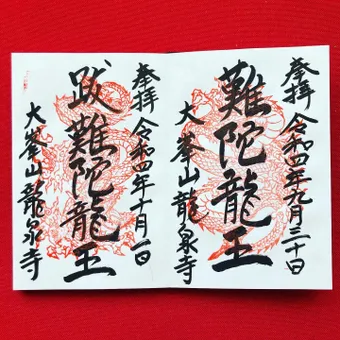 奉拝
令和四年九月三十日
難陀龍王
大峯山龍泉寺
奉拝
令和四年十月一日
跋難陀龍王
大峯山龍泉寺